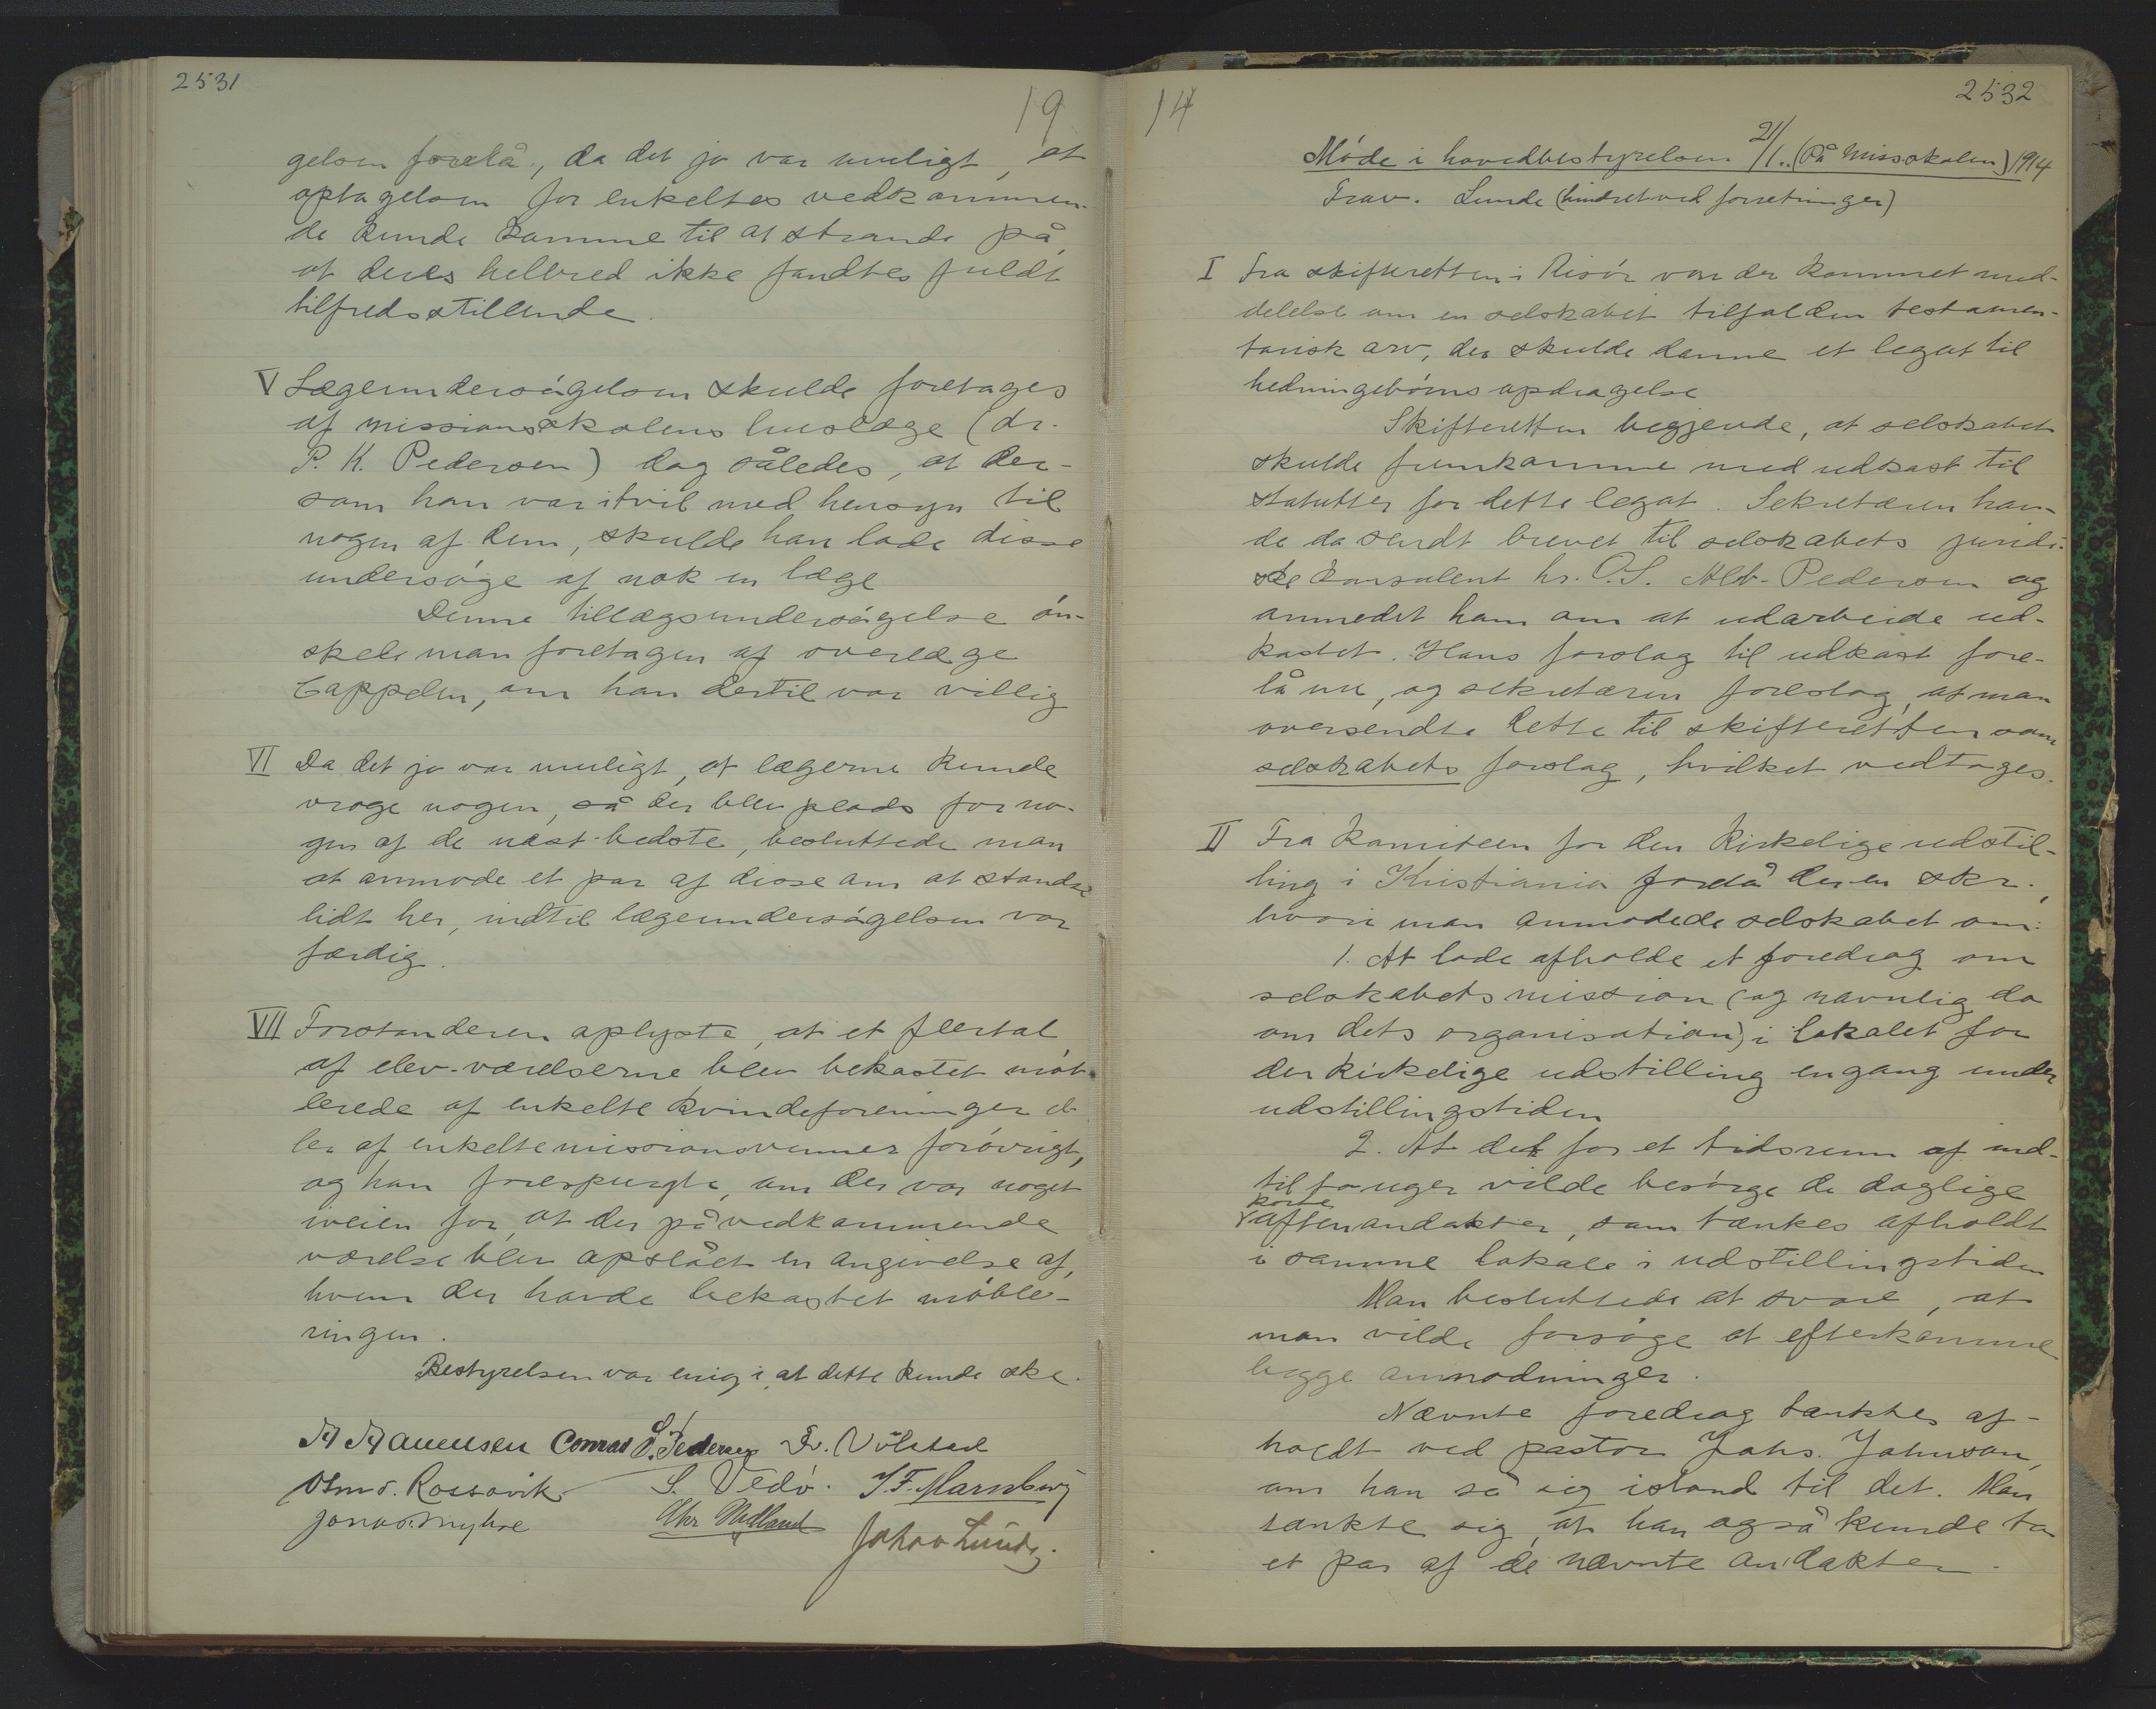 2531
19
gelsen forelå, da det jo var muligt, at
optagelsen for enkeltes vedkommen-
de kunde komme til at strande på,
at deres helbred ikke fandtes fuldt
tilfredsstillende.
V Lægeundersøgelsen skulde foretages
af missionsskolens huslæge (dr.
P. K. Pedersen) dog således, at der-
som han var itvil med hensyn til
nogen af dem, skulde han lade disse
undersøge af nok en læge
Denne tillægsundersøgelse øn-
skede man foretagen af overlæge
Cappelen, om han dertil var villig
VI Da det jo var muligt, at lægerne kunde
vrage nogen, så der blev plads for no-
gen af de næst-bedste, besluttede man
at anmode et par af disse om at standse
lidt her, indtil lægeundersøgelsen var
færdig.
VII Forstanderen oplyste, at et flertal
af elev-værelserne blev bekostet møb-
lerede af enkelte kvindeforeninger el-
ler af enkelte missionsvenner forøvrigt,
og han forespurgte, om der var noget
iveien for, at der på vedkommende
værelse blev opslået en angivelse af,
hvem der havde bekostet møble-
ringen.
Bestyrelsen var enig i, at dette kunde ske.
Conrad S. Pedersen
Osm. Rossavik S. Vedø.
Jonas Myhre Chr Midland
Johan Lunde.
14
2532
Møde i hovedbestyrelsen 21/1.. (På Missskolen) 1914
Frav. Lunde (hindret ved forretninger)
I Fra skifteretten i Risør var der kommet med-
delelse om en selskabet tilfalden testamen-
tarisk arv, der skulde danne et legat til
hedningebørns opdragelse
Skifteretten begjerde, at selskabet
skulde fremkomme med udkast til
statutter for dette legat. Sekretæren hav-
de da sendt brevet til selskabets juridi-
ske konsulent hr. O.S. Alb-Pedersen og
anmodet ham om at udarbeide ud-
kastet. Hans forslag til udkast fore-
lå nu, og sekretæren foreslog, at man
oversendte dette til skifteretten som
selskabets forslag, hvilket vedtoges.
II Fra komiteen for den kirkelige udstil-
ling i Kristiania forelå der en skr.,
hvori man anmodede selskabet om:
1. At lade afholde et foredrag om
selskabets mission (og navnlig da
om dets organisation) i lokalet for
den kirkelige udstilling engang under
udstillingstiden
2. At det for et tidsrum af ind-
til to uger vilde besørge de daglige
korte
aftenandakter, som tænkes afholdt
i samme lokale i udstillingstiden
Man besluttede at svare, at
man vilde forsøge at efterkomme
begge anmodninger.
Nævnte foredrag tænktes af-
holdt ved pastor Johs. Johnson,
om han så sig istand til det. Man
tænkte sig, at han også kunde ta
et par af de nævnte andakter.